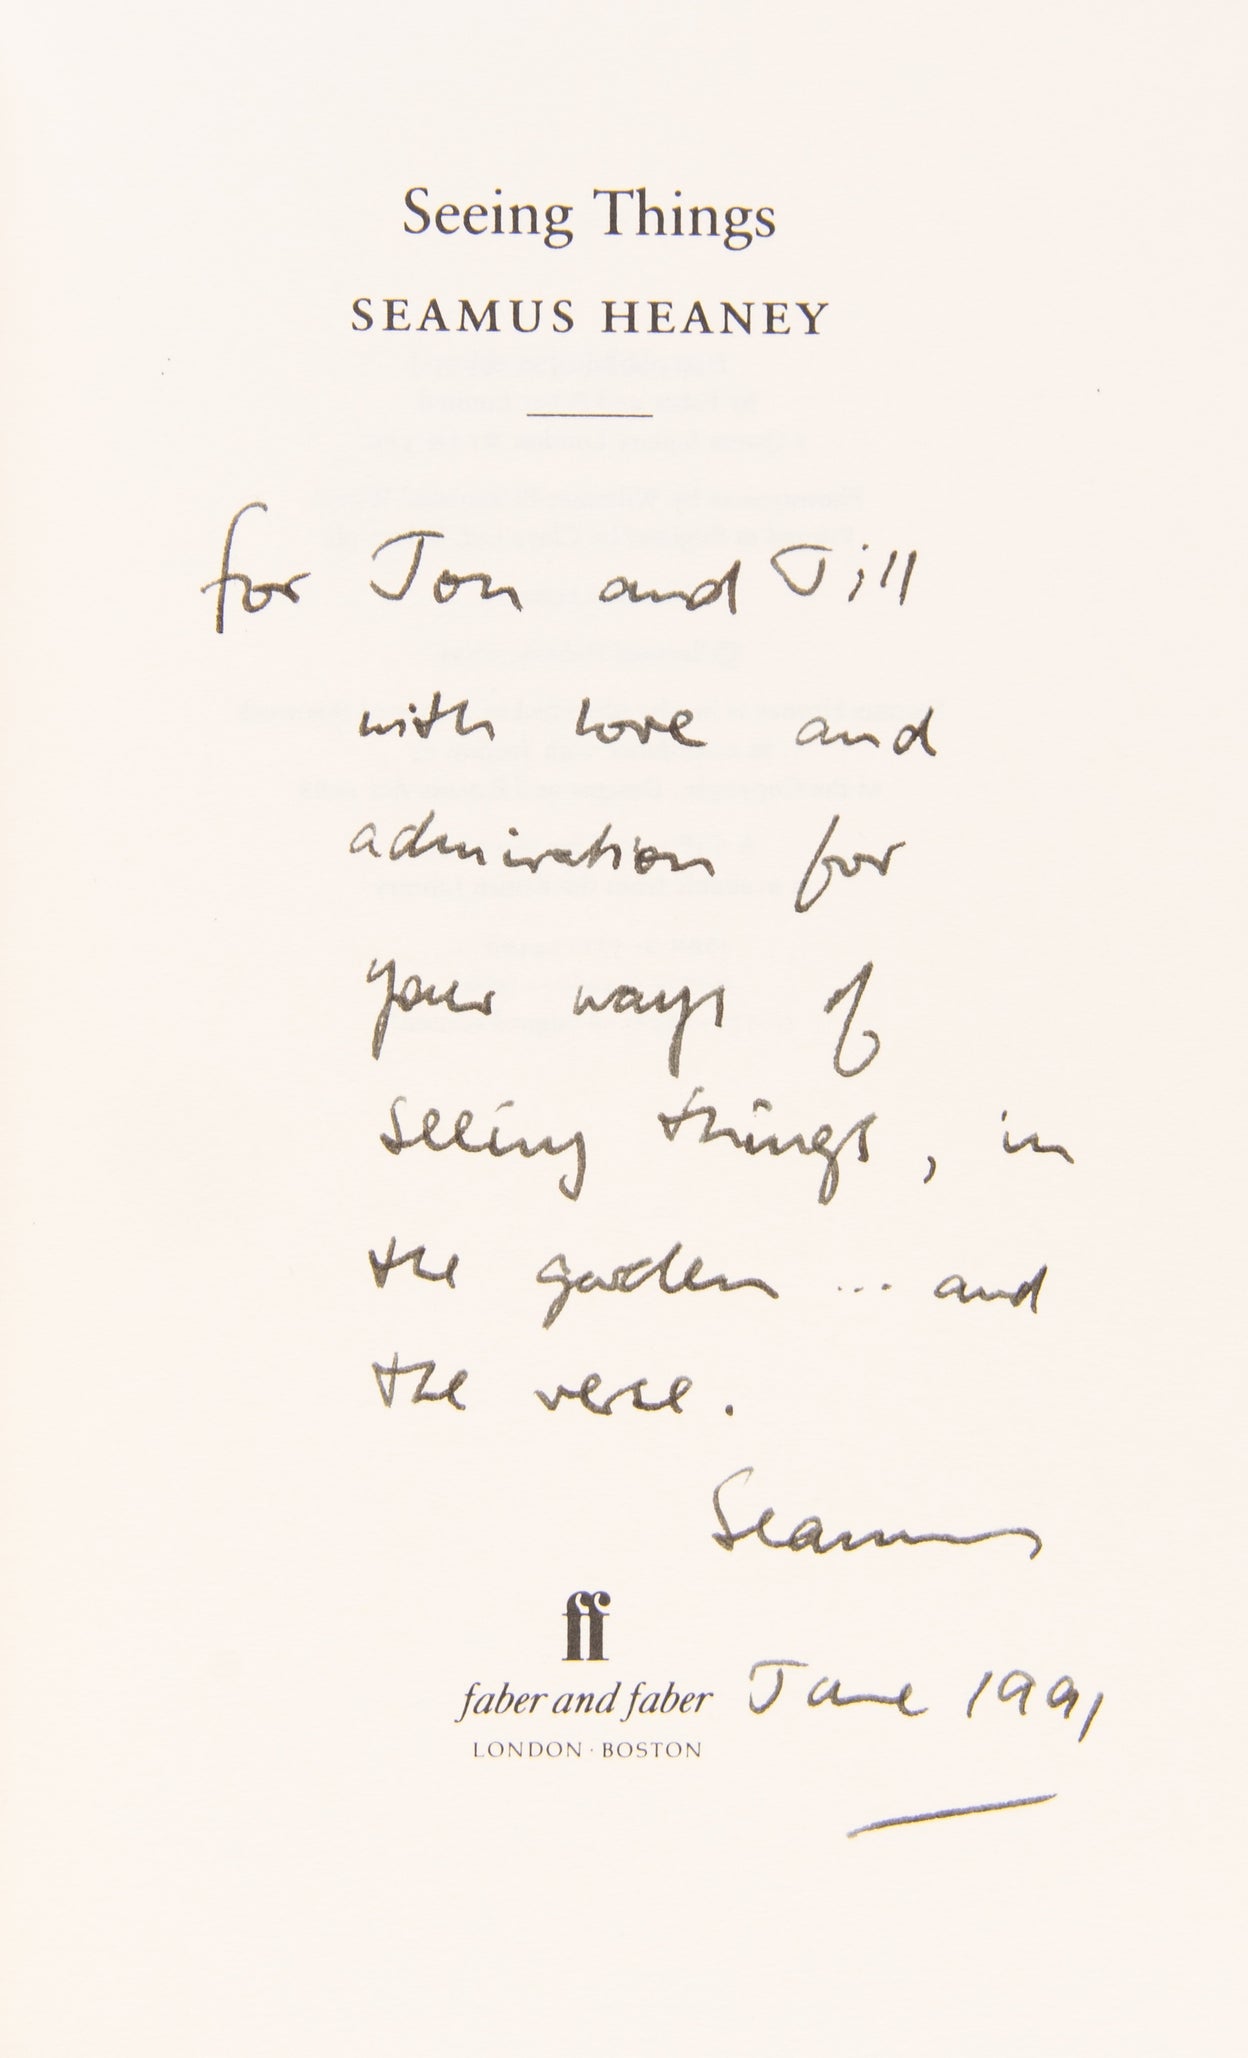 Seeing Things
SEAMUS HEANEY
for Jon and Jill
with love and
admiration for
your ways of
seeing things, in
the garden ... and
the verse.
Seamus
ff
faber and faber
LONDON · BOSTON
June 1991